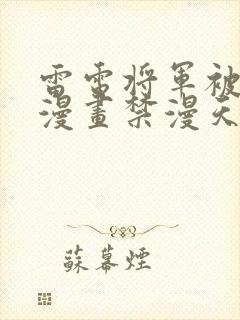 雷電将軍被
漫畫禁漫天
蘇幕煙